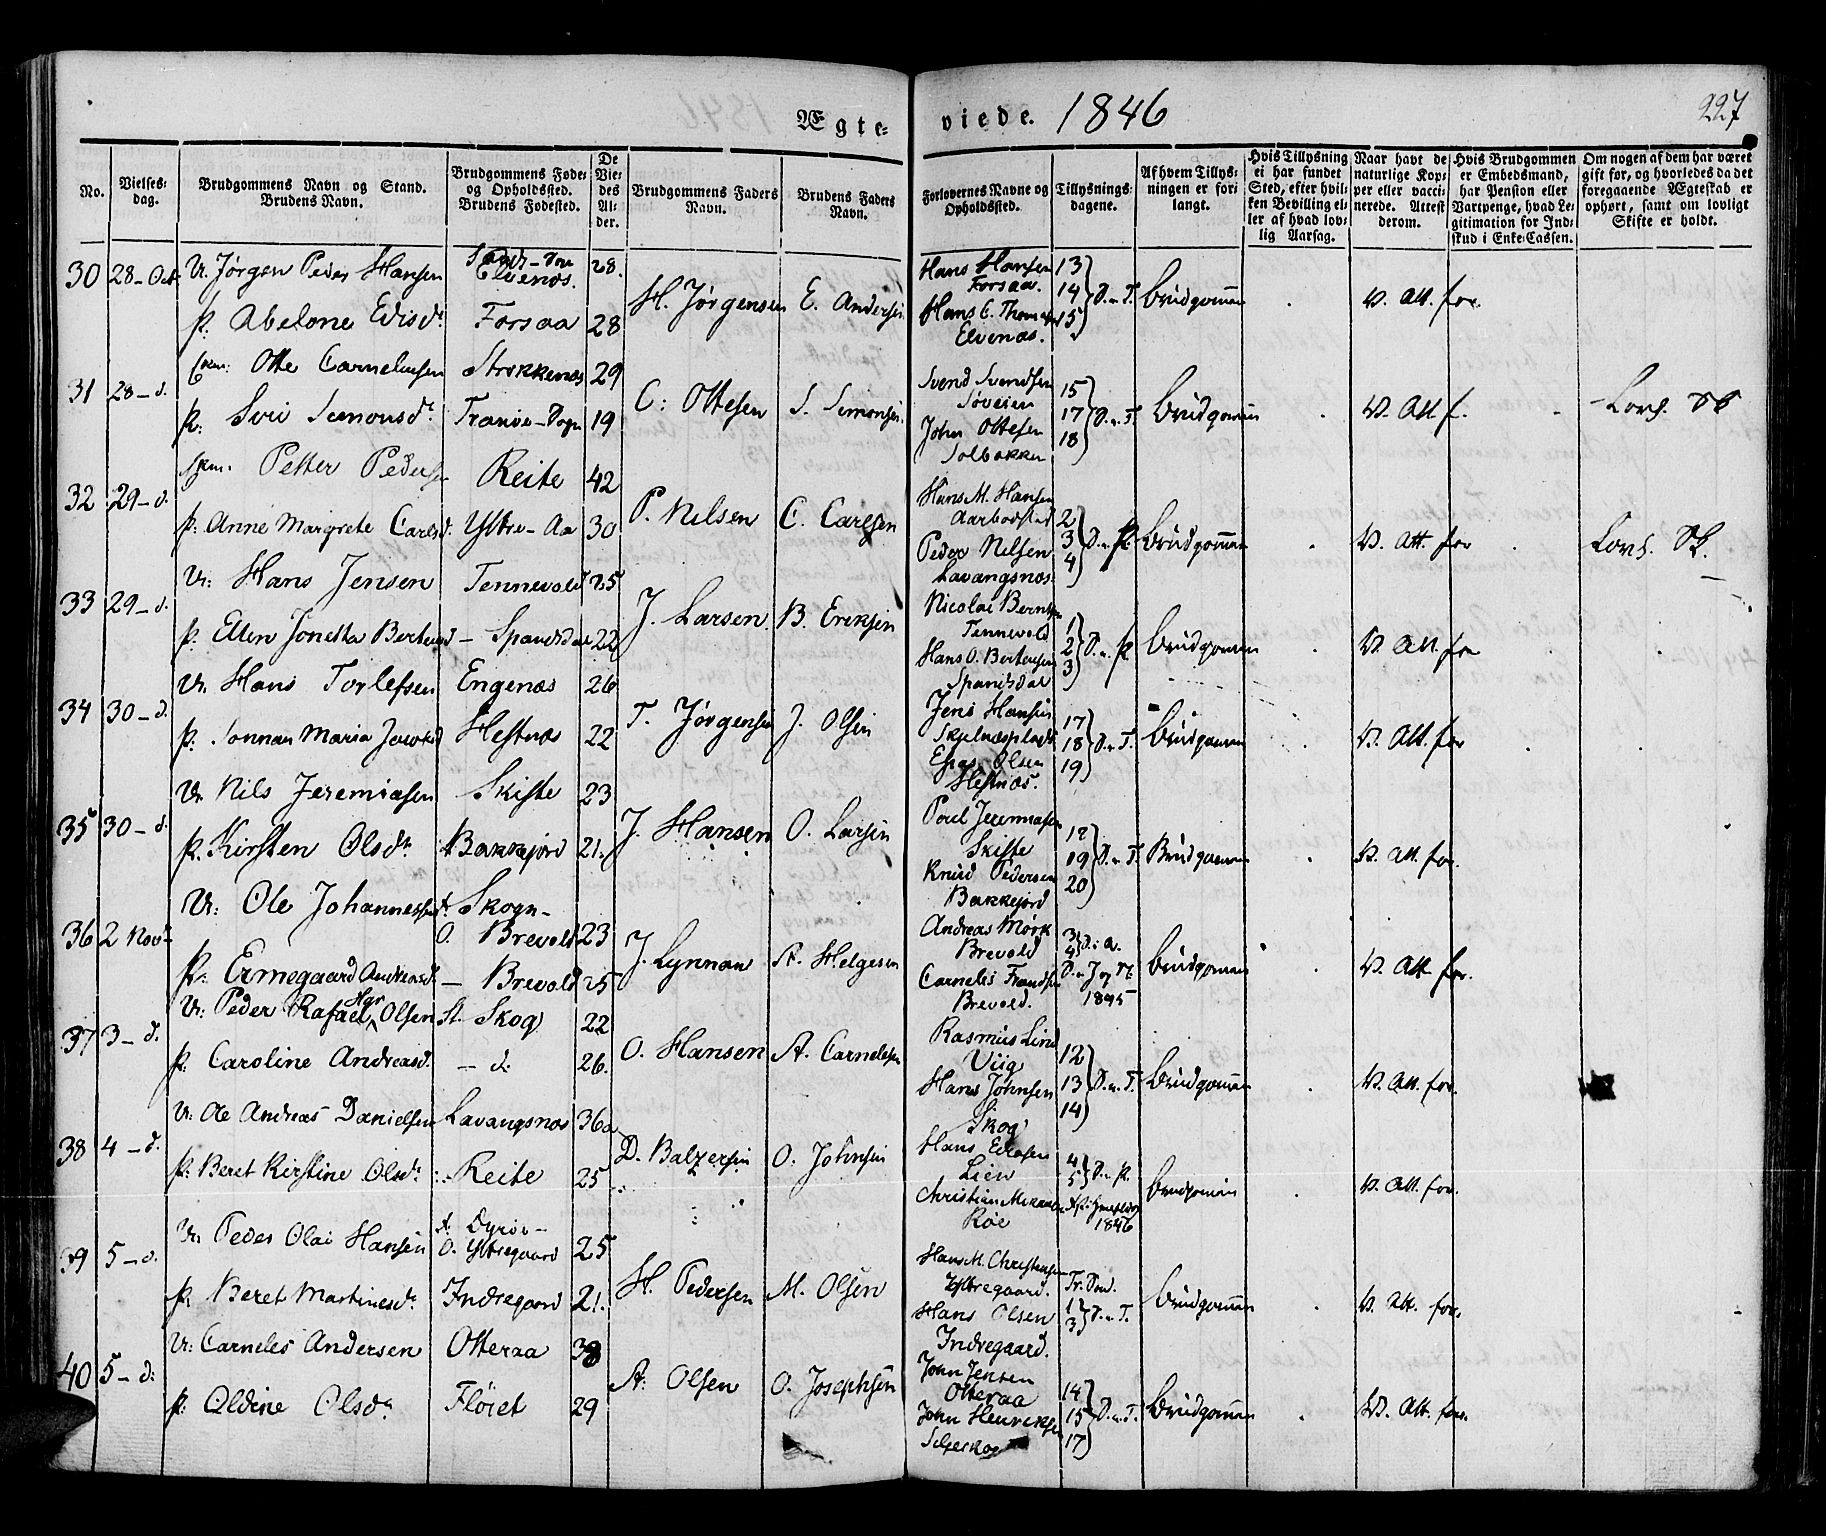 Ægte- viede. 1846 227
No.
Vielses-
dag.
Brudgommens Navn og Stand.
Brudens Navn.
Brudgommens Føde-
og Opholdssted.
Brudens Fødested.
De
Vie-
des
Al-
der.
Brudgommens Faders
Navn.
Brudens Faders
Navn.
Forlovernes Navne og
Opholdssted.
Tillysnings-
dagene.
Af hvem Tillys-
ningen er for-
langt.
Hvis Tillysning
ei har fundet
Sted, efter hvil-
ken Bevilling el-
ler af hvad lov-
lig Aarsag.
Naar havt de
naturlige Kop-
per eller vacci-
nerede. Attest
derom.
Hvis Brudgommen
er Embedsmand,
har Pension eller
Vartpenge, hvad Le-
gitimation for Ind-
skud i Enke-Cassen.
Om nogen af dem har været
gift før, og hvorledes da det
foregaaende Ægteskab er
ophørt, samt om lovligt
Skifte er holdt.
30 28 - Oct. U. Jørgen Peder Hansen Elvenæs. 28. H. Jørgensen E. Andersen Hans Hansen Forsaa. 13 14 15 D. u. T. Brudgommen V. Att. for.
p. Abelone Edisd. Forsaa 28 Hans C. Elvenæs.
31 28 - d. Otte Cornelius̈en 29 C: Ottesen S. Simonsen Svend Svendsen Søveien 15 17 18 D. u. T. Brudgommen V. Att f.
p: Simonsd. Tranøe- 19 John Ottesen Solbakken
32 29 - d. Petter Pedersen Reite 42 P. Nilsen C. Carlsen Hans M. Hansen 2 3 4 Brudgommen V. Att. for
p: Anne Margrete Carlsd. Yttre- Aa 30 Peder Nilsen Lavangsnæs
33 29 - d. U: Hans Jensen Tennevold 25 J. Larsen B. Eriksen Nicolai Tennevold 1 2 3 Brudgommen V. Att. for
p. Ellen Jonetta - Spansdal 22 Hans O. Spansdal
34 30 - d. U. Hans Torlefsen Engenæs 26 T. Jørgensen J. Olsen Jens Hansen 17 18 19 D. u. T. Brudgommen V. Att. for
p: Maria Hestnæs 22 Olsen Hestnæs.
35 30 - d. U. Nils Jeremiasen Skifte 23 J. Hansen O. Larsen Poul Jeremiasen Skifte 19 20 D. u. T. Brudgommen V. Att. for.
p. Kirsten Olsd. Bakkejord 21. Knud Pedersen Bakkejord
36 2 Nov. U: Ole Johannessen Skogn- O. Brevold 23 J. Lynnan A. Helgesen Andreas Mørk Brevold 3 4 Brudgommen V. Att for.
p: Ermegaard Andreasd. - Brevold 25 Cornelis Brevold. 1845
37 3 - d. U: Peder Rafael Olsen St. Skog 22 O. Hansen A. Cornelisen Rasmus Lind Viig 12 13 14 D. u. T. Brudgommen V. Att. for.
p. Caroline Andreasd. - d: 26. Hans Johnsen Skog
38 4 - d. U: Ole Andreas Danielsen Lavangsnæs 36 D. Balzersen O. Johnsen Hans Lien 4 5 Brudgommen V. Att. for.
p: Beret Kirstine Olsd. Reite 25 Christian Røe 1846
39 5 - d. U. Peder Olai Hansen Dyrøe- O. Yttregaard 25 H. Pedersen M. Olsen Hans M. Christensen Yttregaard. 1 3 D. u. T. Brudgommen V. Att. for.
p. Beret Martinesd. Indregaard 21. Hans Olsen Indregaard.
40 5 - d: U: Carneles Andersen Otteraa 38 A. Olsen O. Josephsen John Jensen Otteraa 14 15 17 D. u. T. Brudgommen V. Att. for.
p: Oldine Olsd. Fløiet 29 John Henriksen